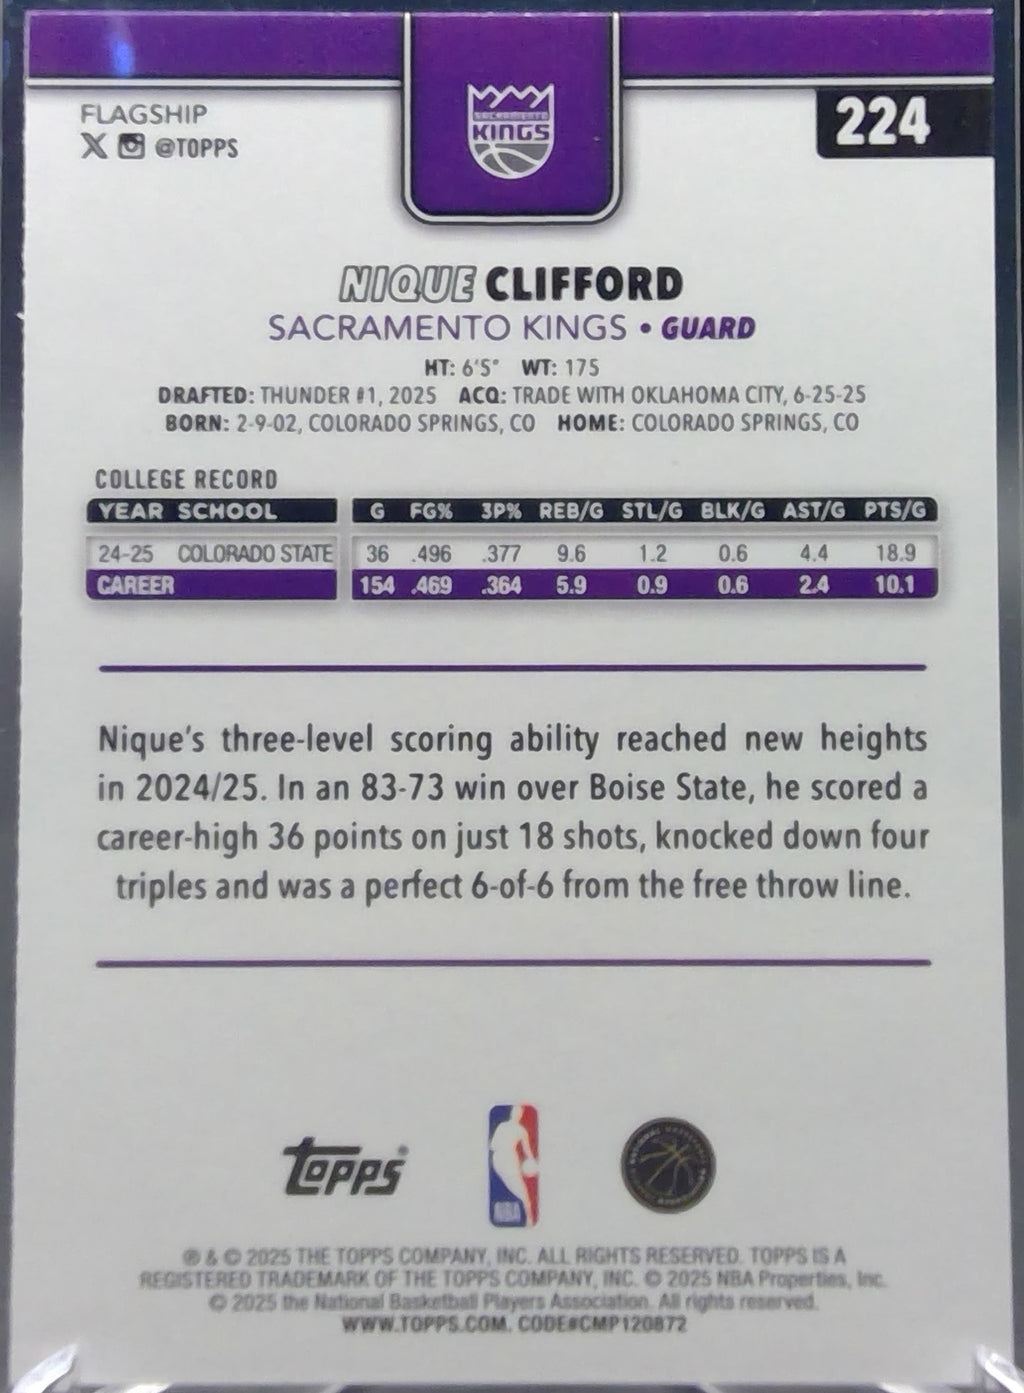 FLAGSHIP
X @TOPPS
SACRAMENTO
KINGS
224
NIQUE CLIFFORD
SACRAMENTO KINGS • GUARD
HT: 6'5" WT: 175
DRAFTED: THUNDER #1, 2025 ACQ: TRADE WITH OKLAHOMA CITY, 6-25-25
BORN: 2-9-02, COLORADO SPRINGS, CO HOME: COLORADO SPRINGS, CO
COLLEGE RECORD
YEAR SCHOOL G FG% 3P% REB/G STL/G BLK/G AST/G PTS/G
24-25 COLORADO STATE 36 .496 .377 9.6 1.2 0.6 4.4 18.9
CAREER 154 .469 .364 5.9 0.9 0.6 2.4 10.1
Nique's three-level scoring ability reached new heights
in 2024/25. In an 83-73 win over Boise State, he scored a
career-high 36 points on just 18 shots, knocked down four
triples and was a perfect 6-of-6 from the free throw line.
Topps®
NBA
® & © 2025 THE TOPPS COMPANY, INC. ALL RIGHTS RESERVED. TOPPS IS A
REGISTERED TRADEMARK OF THE TOPPS COMPANY, INC. © 2025 NBA Properties, Inc.
© 2025 the National Basketball Players Association. All rights reserved.
WWW.TOPPS.COM. CODE#CMP120872